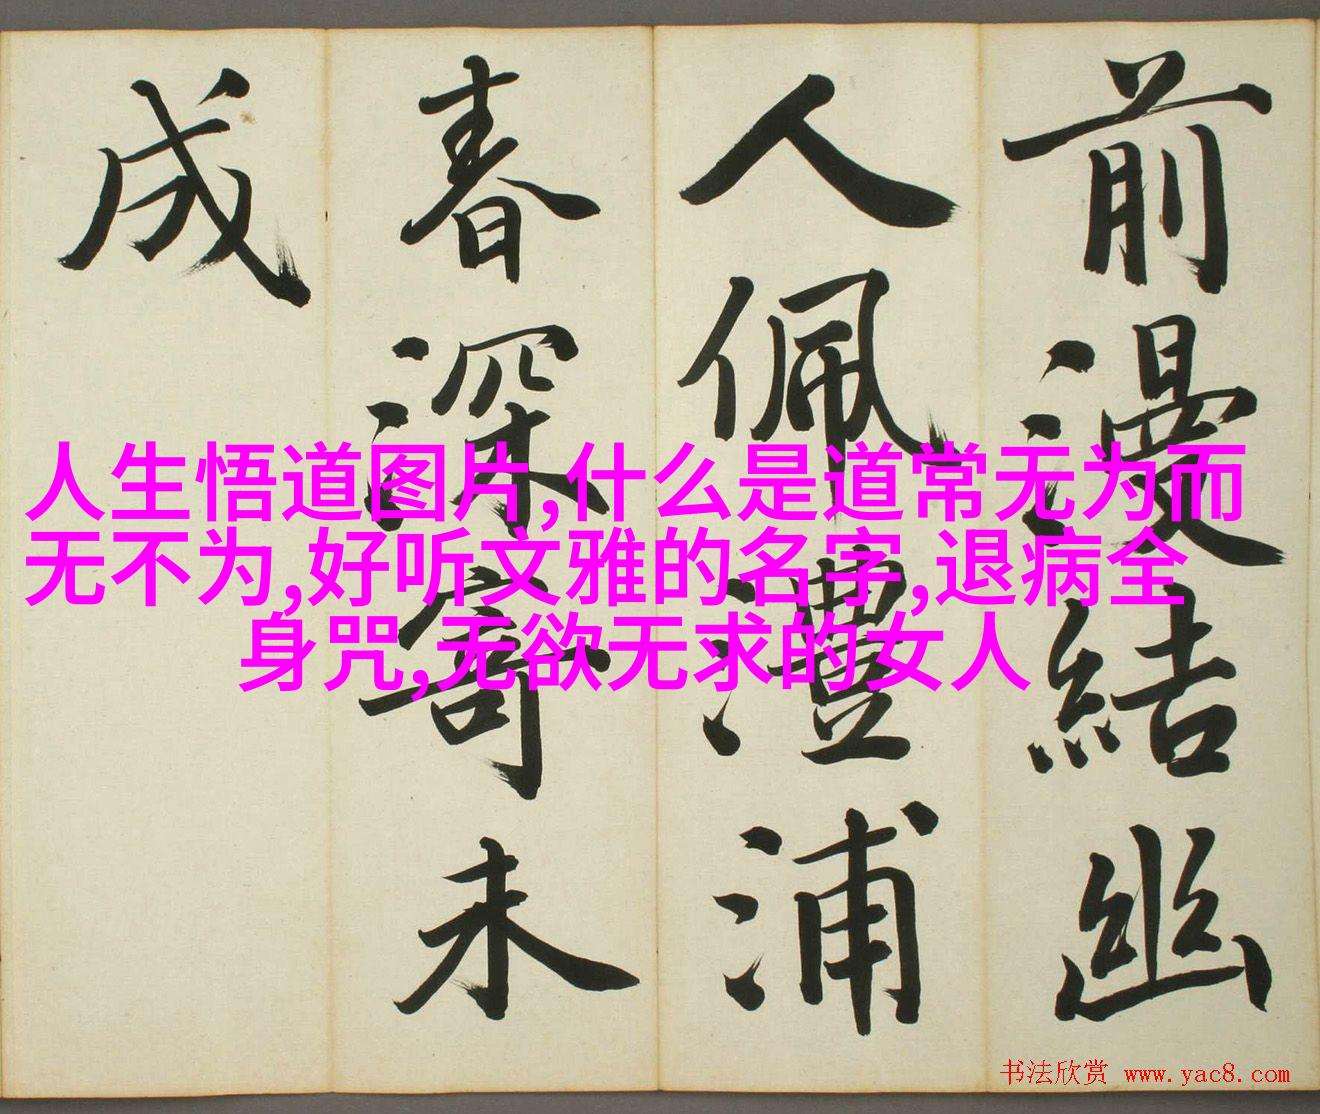 前漫結幽
人佩澧浦
春深寄未
成
人生悟道图片,什么是道常无为而
无不为,好听文雅的名字,退病全
身咒,无欲无求的女人
书法欣赏 www.yac8.com